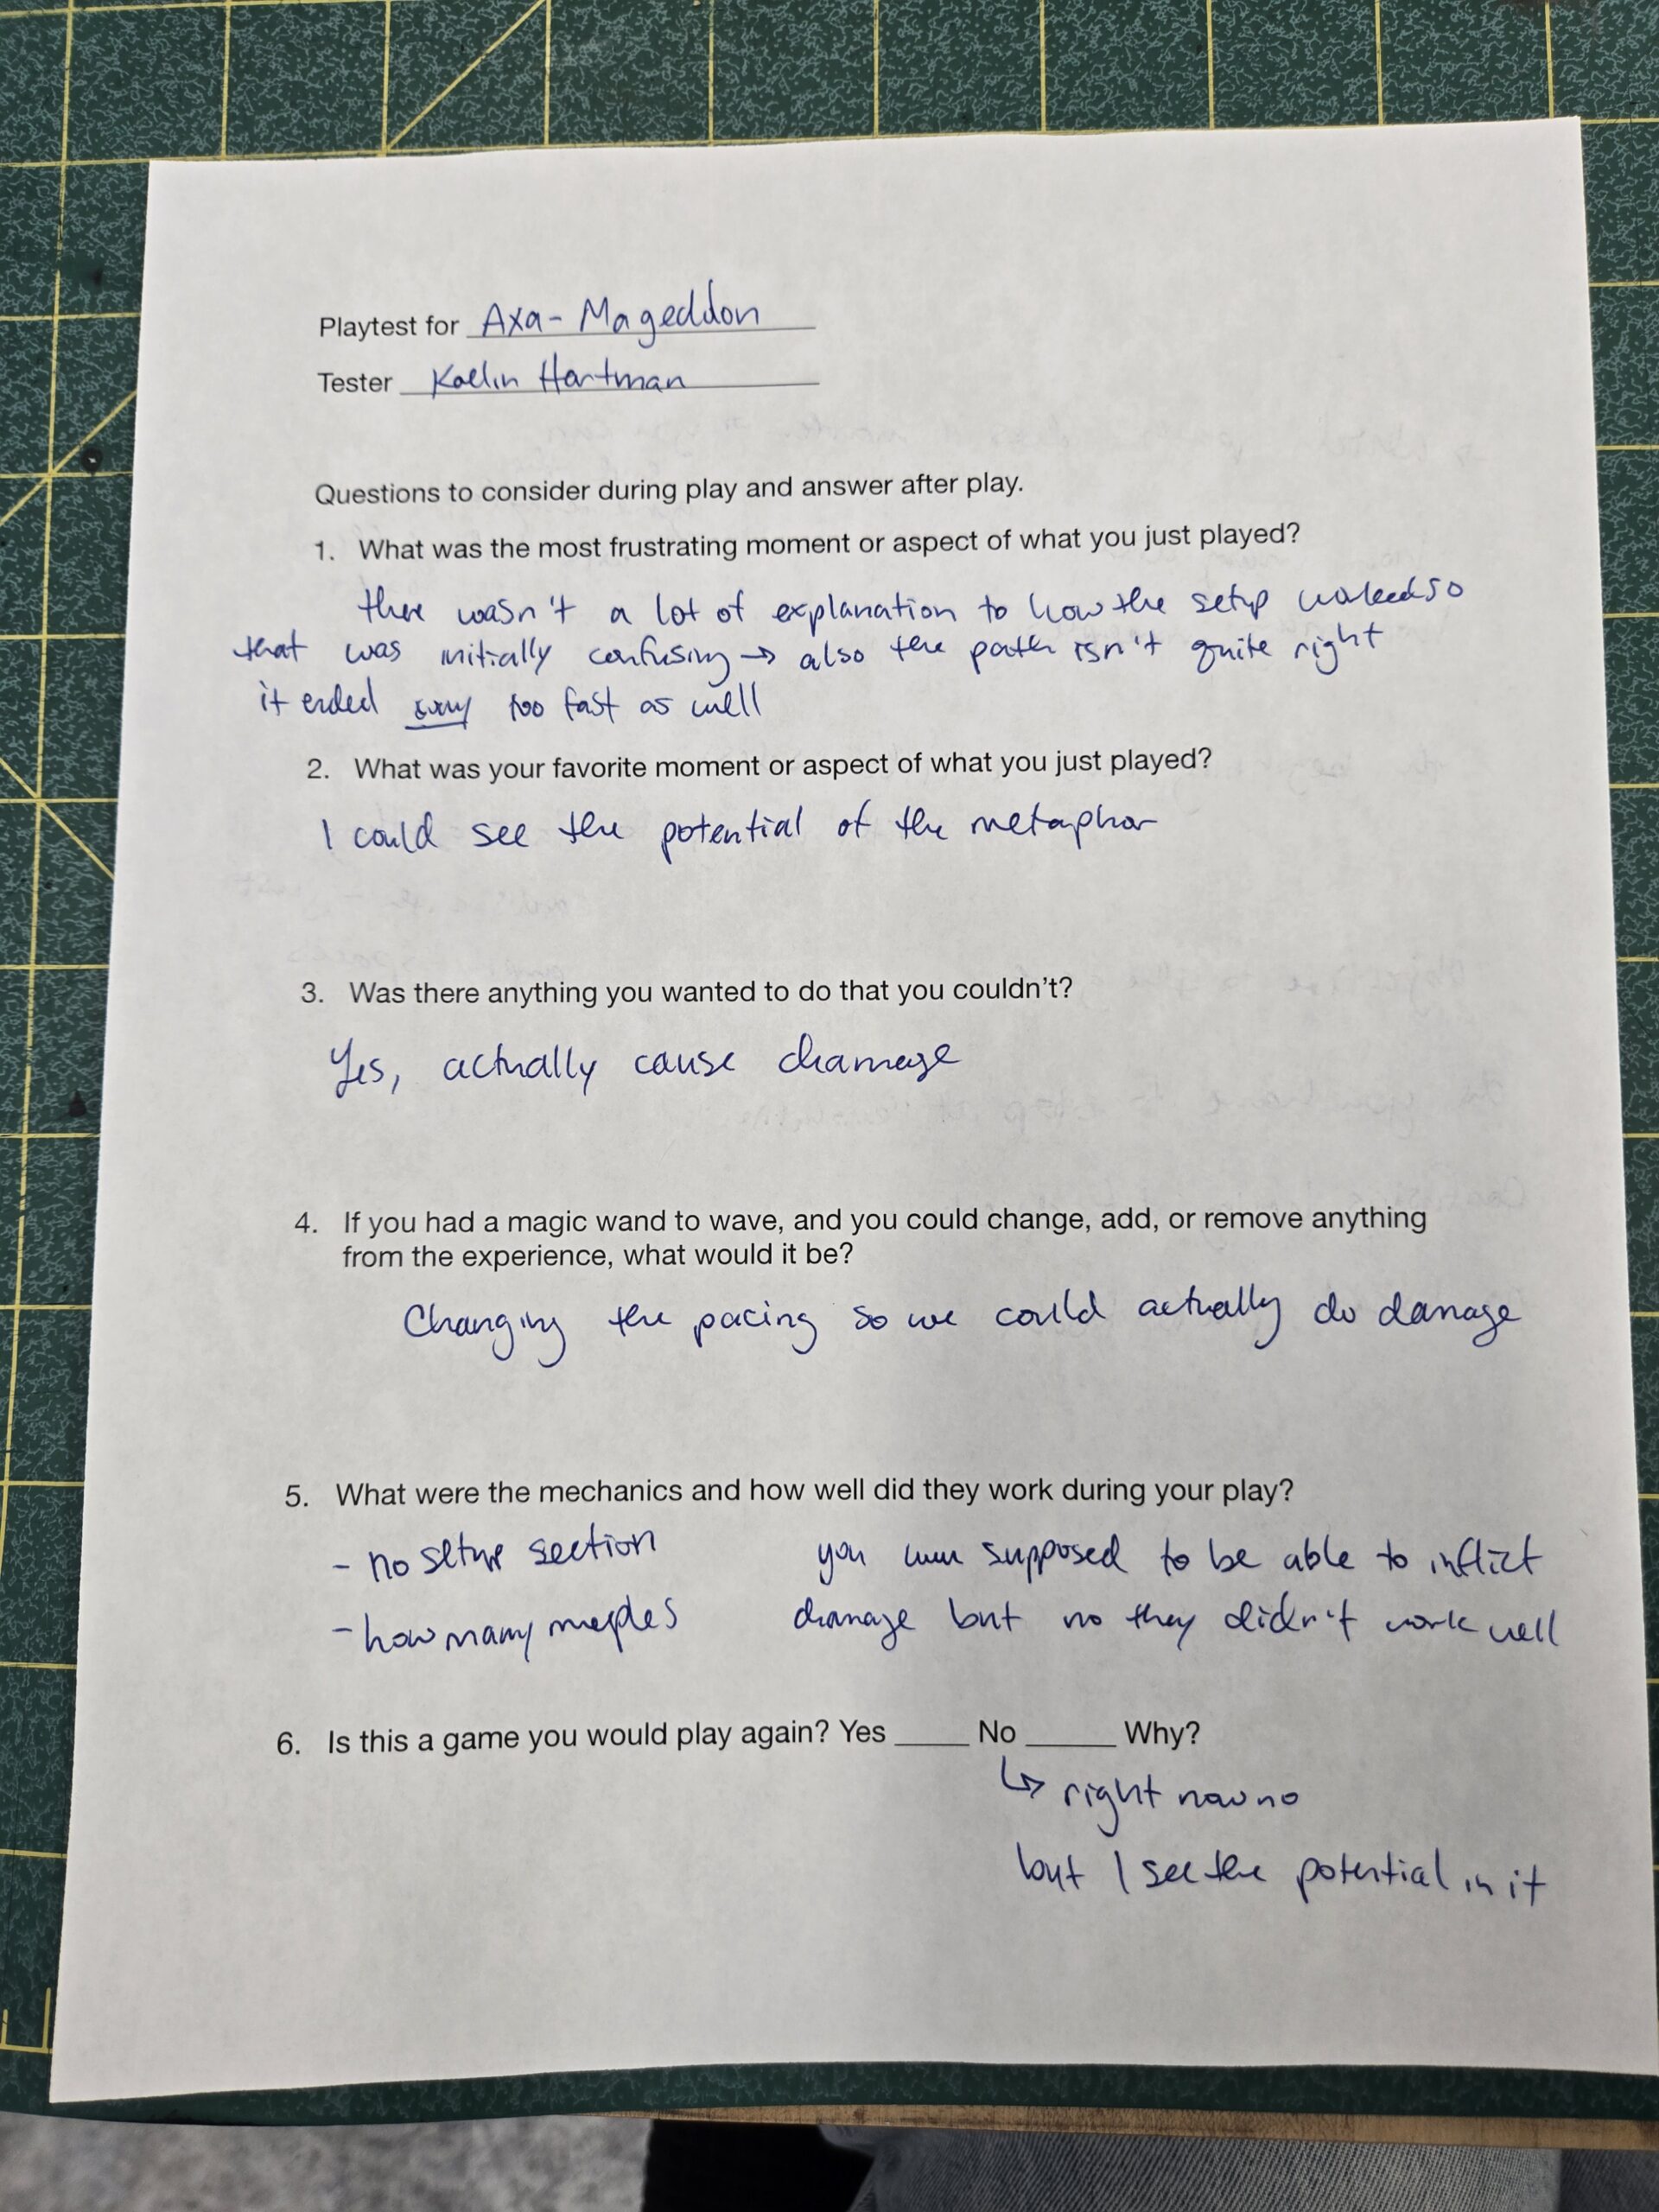 Playtest for Axa-Mageddon
Tester Kaelin Hartman
Questions to consider during play and answer after play.
1. What was the most frustrating moment or aspect of what you just played?
there wasn't a lot of explanation to how the setup worked so
that was initially confusing → also the path isn't quite right
it ended too fast as well
2. What was your favorite moment or aspect of what you just played?
I could see the potential of the metaphor
3. Was there anything you wanted to do that you couldn't?
Yes, actually cause damage
4. If you had a magic wand to wave, and you could change, add, or remove anything
from the experience, what would it be?
Changing the pacing so we could actually do damage
5. What were the mechanics and how well did they work during your play?
- no setup section
- how many meeples
you were supposed to be able to inflict
damage but no they didn't work well
6. Is this a game you would play again? Yes _____ No ______ Why?
↳ right now no
but I see the potential in it